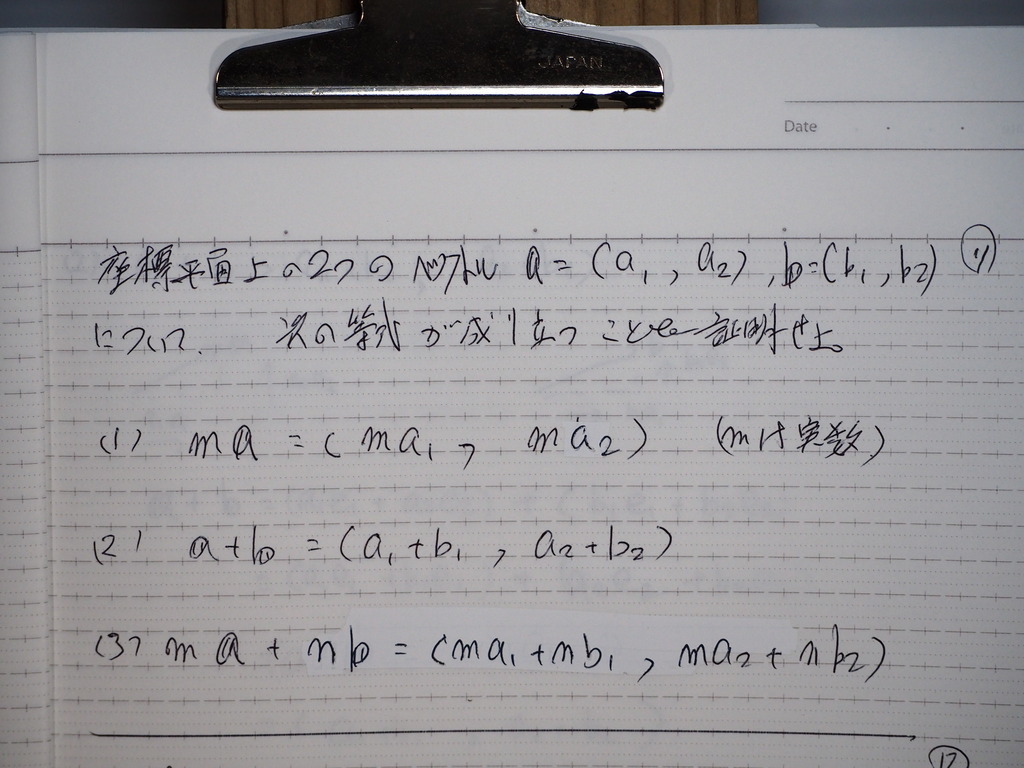 JAPAN
Date
座標平面上の2つのベクトル a = (a₁, a₂), b = (b₁, b₂)
について、 次の等式が成り立つことを証明せよ。
(1) ma = (ma₁, ma₂) (mは実数)
(2) a+b = (a₁+b₁, a₂+b₂)
(3) ma + nb = (ma₁+nb₁, ma₂+nb₂)